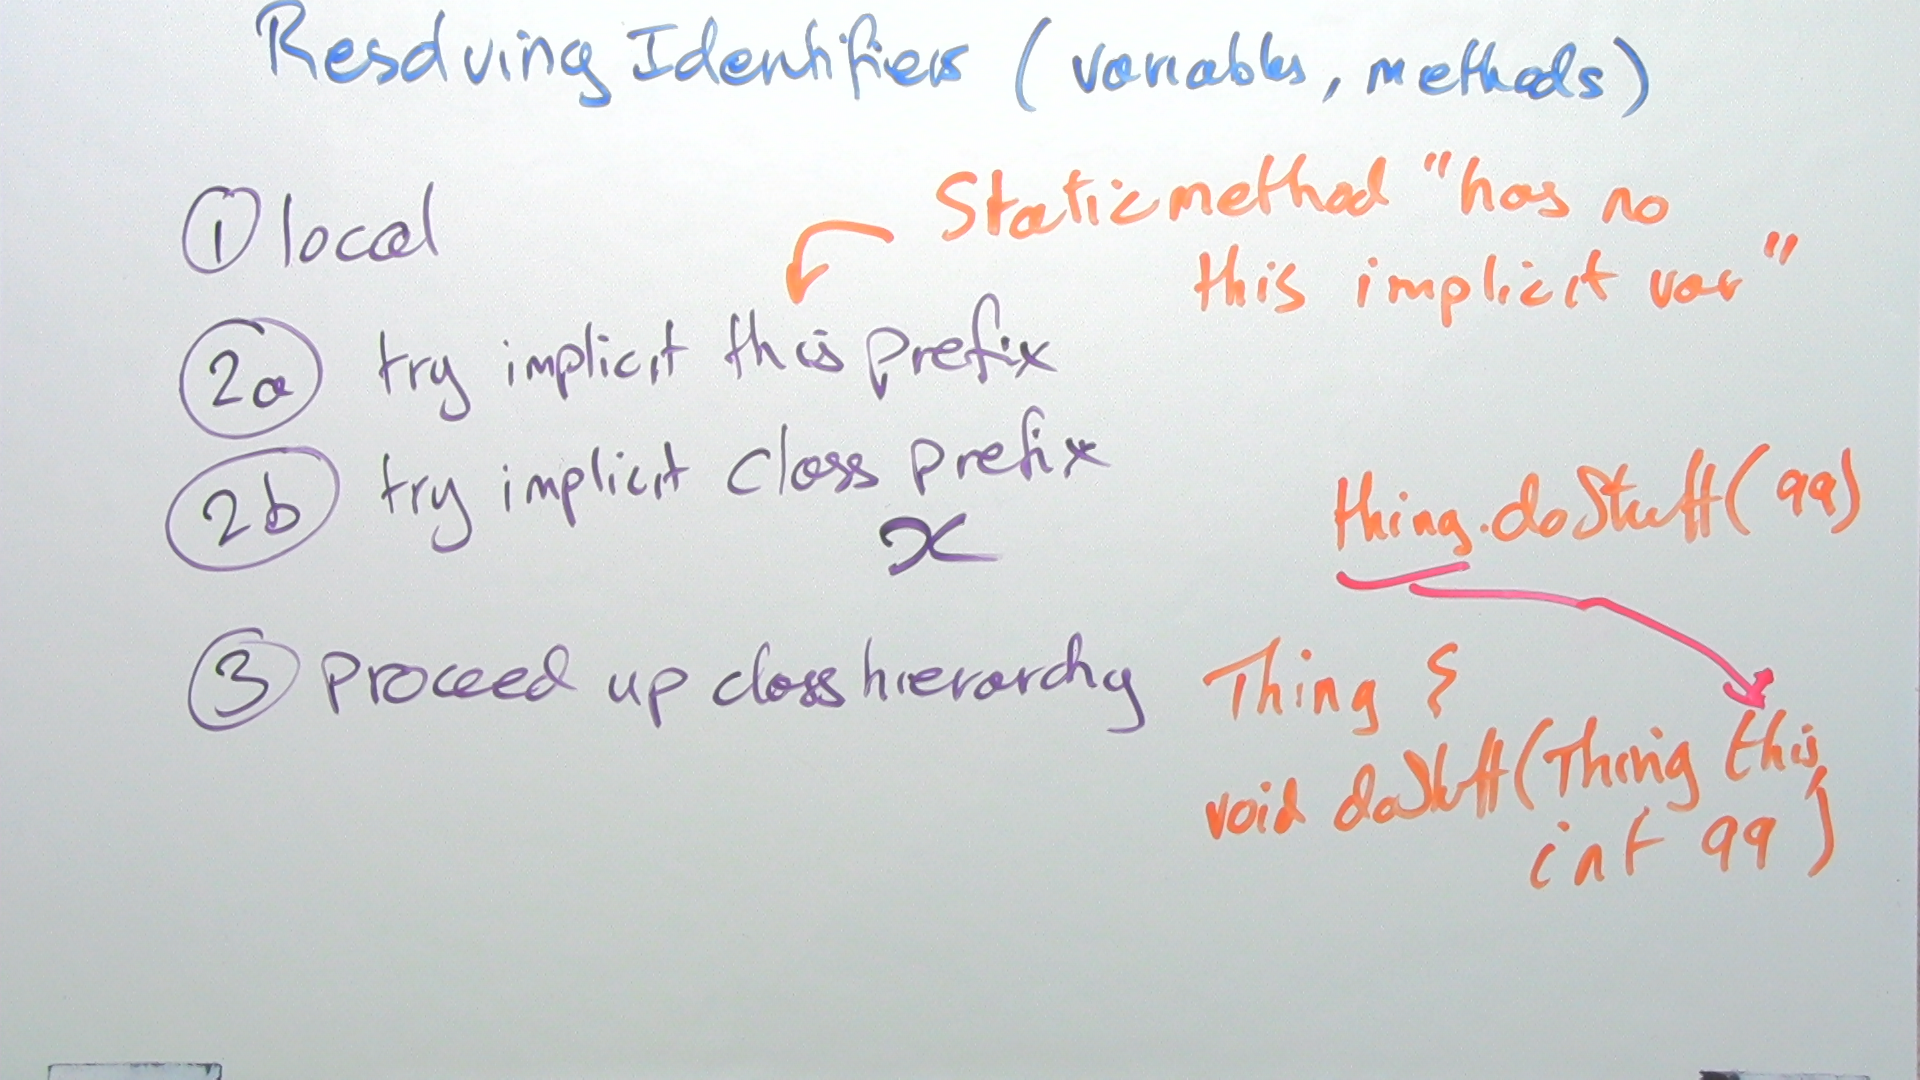 Resolving Identifiers (variables, methods)
① local
Static method "has no
this implicit var"
2a try implicit this prefix
2b try implicit class prefix
x
thing.doStuff(99)
③ proceed up class hierarchy
Thing {
void doStuff(Thing this,
int 99)